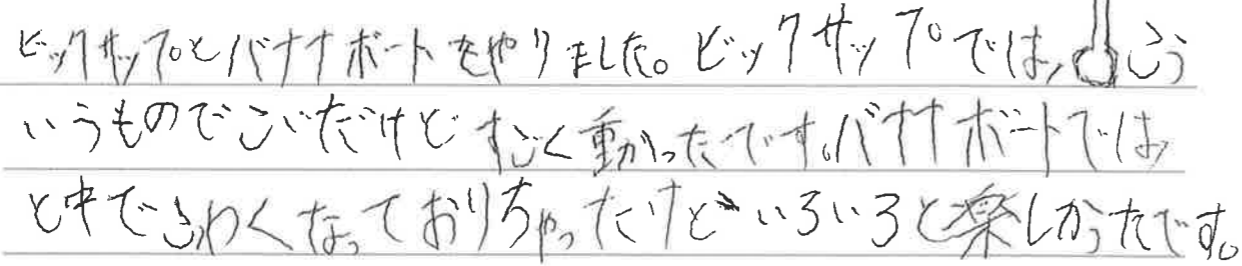 ビックサップとバナナボートをやりました。ビックサップでは、こう
いうものでこいだけどすごく重かったです。バナナボートでは、
と中でこわくなっておりちゃったけどいろいろと楽しかったです。